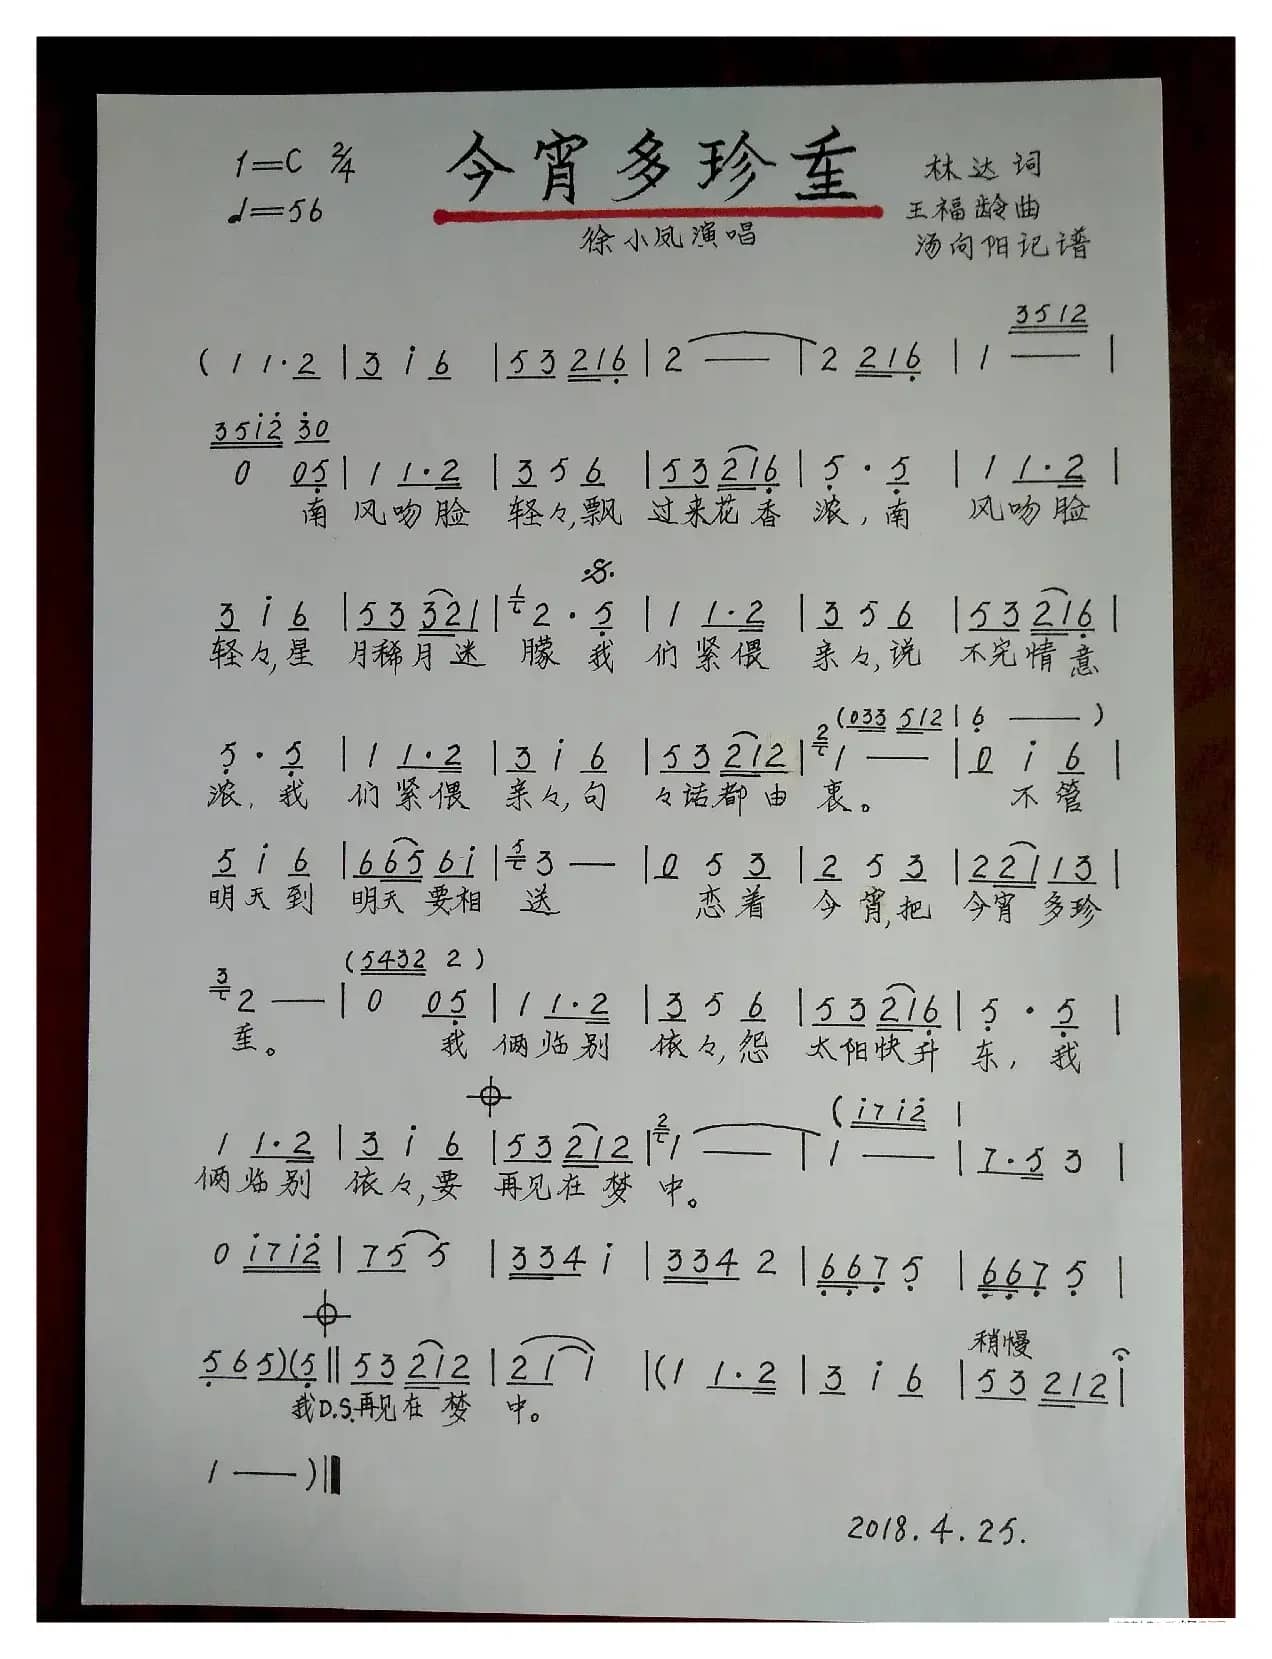 1=C 2/4
♩=56
今宵多珍重
徐小凤演唱
林达词
王福龄曲
汤向阳记谱
3512
( 1 1·2 | 3 i 6 | 53 216 | 2 — | 2 216 | 1 — |
35i2 30
0 05 | 1 1·2 | 3 5 6 | 53 216 | 5 · 5 | 1 1·2 |
南 风吻脸 轻々,飘 过来花香 浓,南 风吻脸
3 i 6 | 53 321 | 2 · 5 | 1 1·2 | 3 5 6 | 53 216 |
轻々,星 月稀月迷 朦 我 们紧偎 亲々,说 不完情意
(033 512 | 6 — )
5 · 5 | 1 1·2 | 3 i 6 | 53 212 | 1 — | 0 i 6 |
浓,我 们紧偎 亲々,句 々话都由 衷。 不管
5 i 6 | 665 6i | 3 — | 0 5 3 | 2 5 3 | 221 13 |
明天到 明天要相 送 恋着 今宵,把 今宵多珍
(5432 2 )
2 — | 0 05 | 1 1·2 | 3 5 6 | 53 216 | 5 · 5 |
重。 我 俩临别 依々,怨 太阳快升 东,我
(i7i2 |
1 1·2 | 3 i 6 | 53 212 | 1 — | 1 — | 7·5 3 |
俩临别 依々,要 再见在梦 中。
0 i7i2 | 75 5 | 334 i | 334 2 | 667 5 | 667 5 |
稍慢
565)(5 || 53 212 | 21 1 |(1 1·2 | 3 i 6 | 53 212 |
我D.S.再见在梦 中。
1 — )||
2018.4.25.